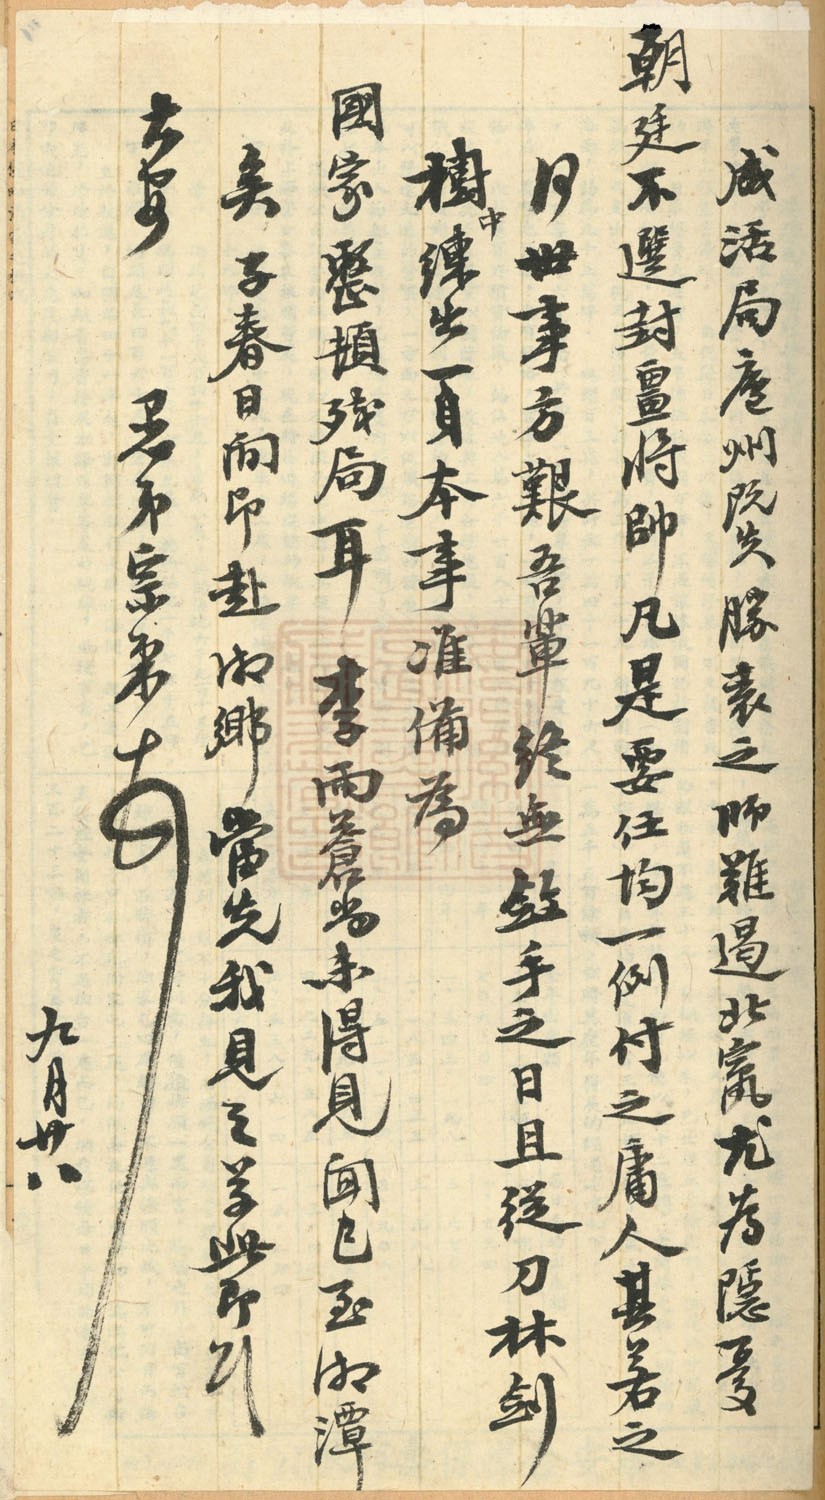 成活局廬州既失勝袁之師難遏北竄尤為隱憂
朝廷不選封畺將帥凡是要任均一例付之庸人其若之
何世事方艱吾輩終無斂手之日且從刀林劍
樹中練出一身本事准備為
國家整頓殘局耳李雨蒼尚未得見聞已至湘潭
矣子春日間即赴湘鄉當先我見之草此即頌
大安 愚弟宗棠頓首
九月廿八